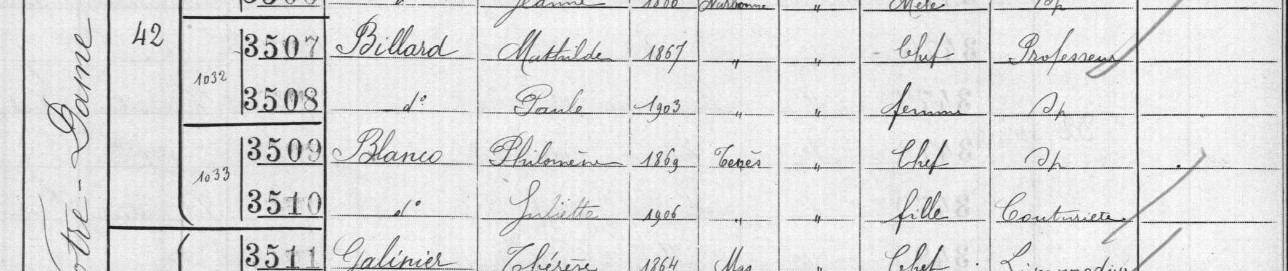 Jeanne 1866 Narbonne " Mère Sp
42 3507 Billard Mathilde 1867 " " Chef Professeur
1032
3508 d° Paule 1903 " " femme Sp
3509 Blanco Philomène 1869 Tenès " Chef Sp
1033
3510 d° Juliette 1906 " " fille Couturière
3511 Galinier Thérèse 1864 " Chef
Notre-Dame